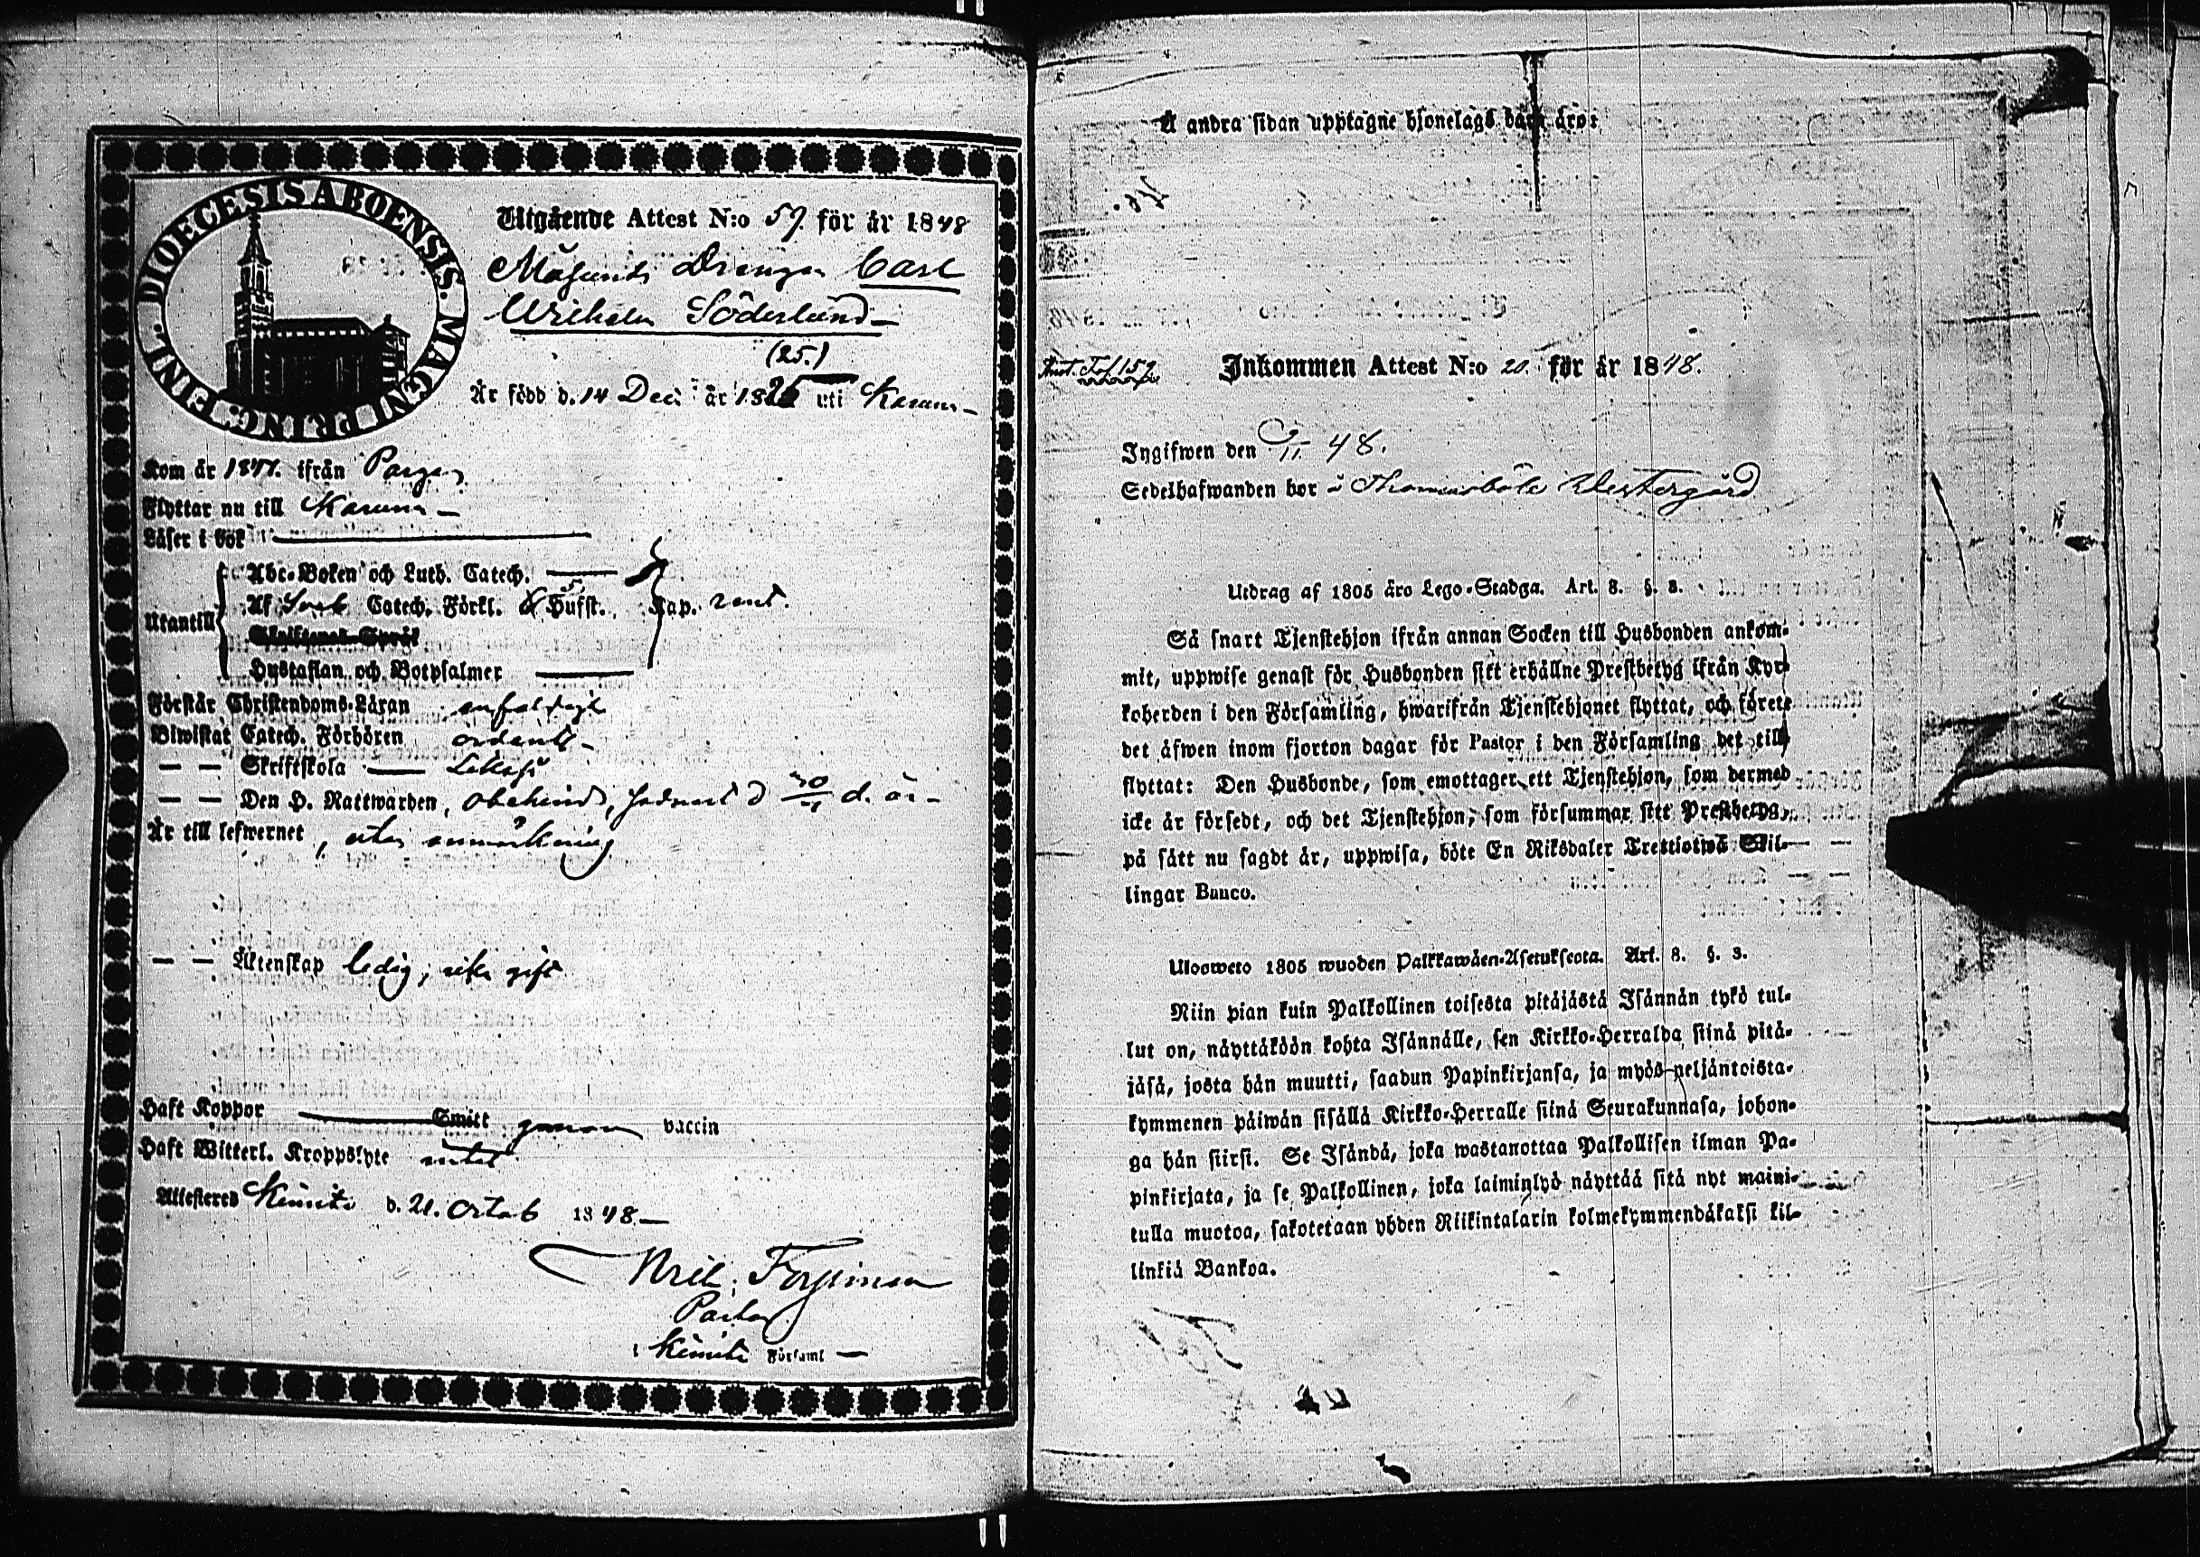 FINL. DIOECESIS ABOENSIS. MAGNI PRINC.
Utgående Attest N:o 59. för år 1848
Drängen Carl
Wilhelm Söderlund
(25.)
Är född d. 14 Dec: år 1825 uti Karuna
Kom år 1847. ifrån Pargas
Flyttar nu till Karuna
Läser i bok
Utantill
Abc-Boken och Luth. Catech.
Af Catech. Förkl. 5 Hufst. Kap.
Skriftenes Språk
Hustaflan och Botpsalmer
Förstår Christendoms-Läran enfaldigt
Biwistat Catech. Förhören ordentl
— — Skriftskola — Likaså
— — Den H. Nattwarden, obehindr,
Är till lefwernet, utan anmärkning
— — Äktenskap ledig, icke gift
Haft Koppor Smitt genom vaccin
Haft Witterl. Kroppslyte intet
Attesteres Kimito d. 21. October 1848
Pastor
i Kimito Församl
Å andra sidan upptagne hjonelags barn äro:
Inkommen Attest N:o 20. för år 1848.
Ingifwen den 48.
Sedelhafwanden bor å Thomasböle Westergård
Utdrag af 1805 års Lego-Stadga. Art. 8. §. 3.
Så snart Tjenstehjon ifrån annan Socken till Husbonden ankom-
mit, uppwise genast för Husbonden sitt erhållne Prestbetyg ifrån Kyr-
koherden i den Församling, hwarifrån Tjenstehjonet flyttat, och förete
det äfwen inom fjorton dagar för Pastor i den Församling det till-
flyttat: Den Husbonde, som emottager ett Tjenstehjon, som dermed
icke är försedt, och det Tjenstehjon, som försummar sitt Prestbetyg,
på sätt nu sagdt är, uppwisa, böte En Riksdaler Trettiotwå Skil-
lingar Banco.
Ulosweto 1805 wuoden Palkkawäen-Asetuksesta. Art. 8. §. 3.
Niin pian kuin Palkollinen toisesta pitäjästä Isännän tykö tul-
lut on, näyttäköön kohta Isännälle, sen Kirkko-Herralda siinä pitä-
jäsä, josta hän muutti, saadun Papinkirjansa, ja myös neljäntoista-
kymmenen päiwän sisällä Kirkko-Herralle siinä Seurakunnasa, johon-
ga hän siirsi. Se Isändä, joka wastanottaa Palkollisen ilman Pa-
pinkirjata, ja se Palkollinen, joka laiminlyö näyttää sitä nyt maini-
tulla muotoa, sakotetaan yhden Riikintalarin kolmekymmendäkaksi kil-
linkiä Bankoa.